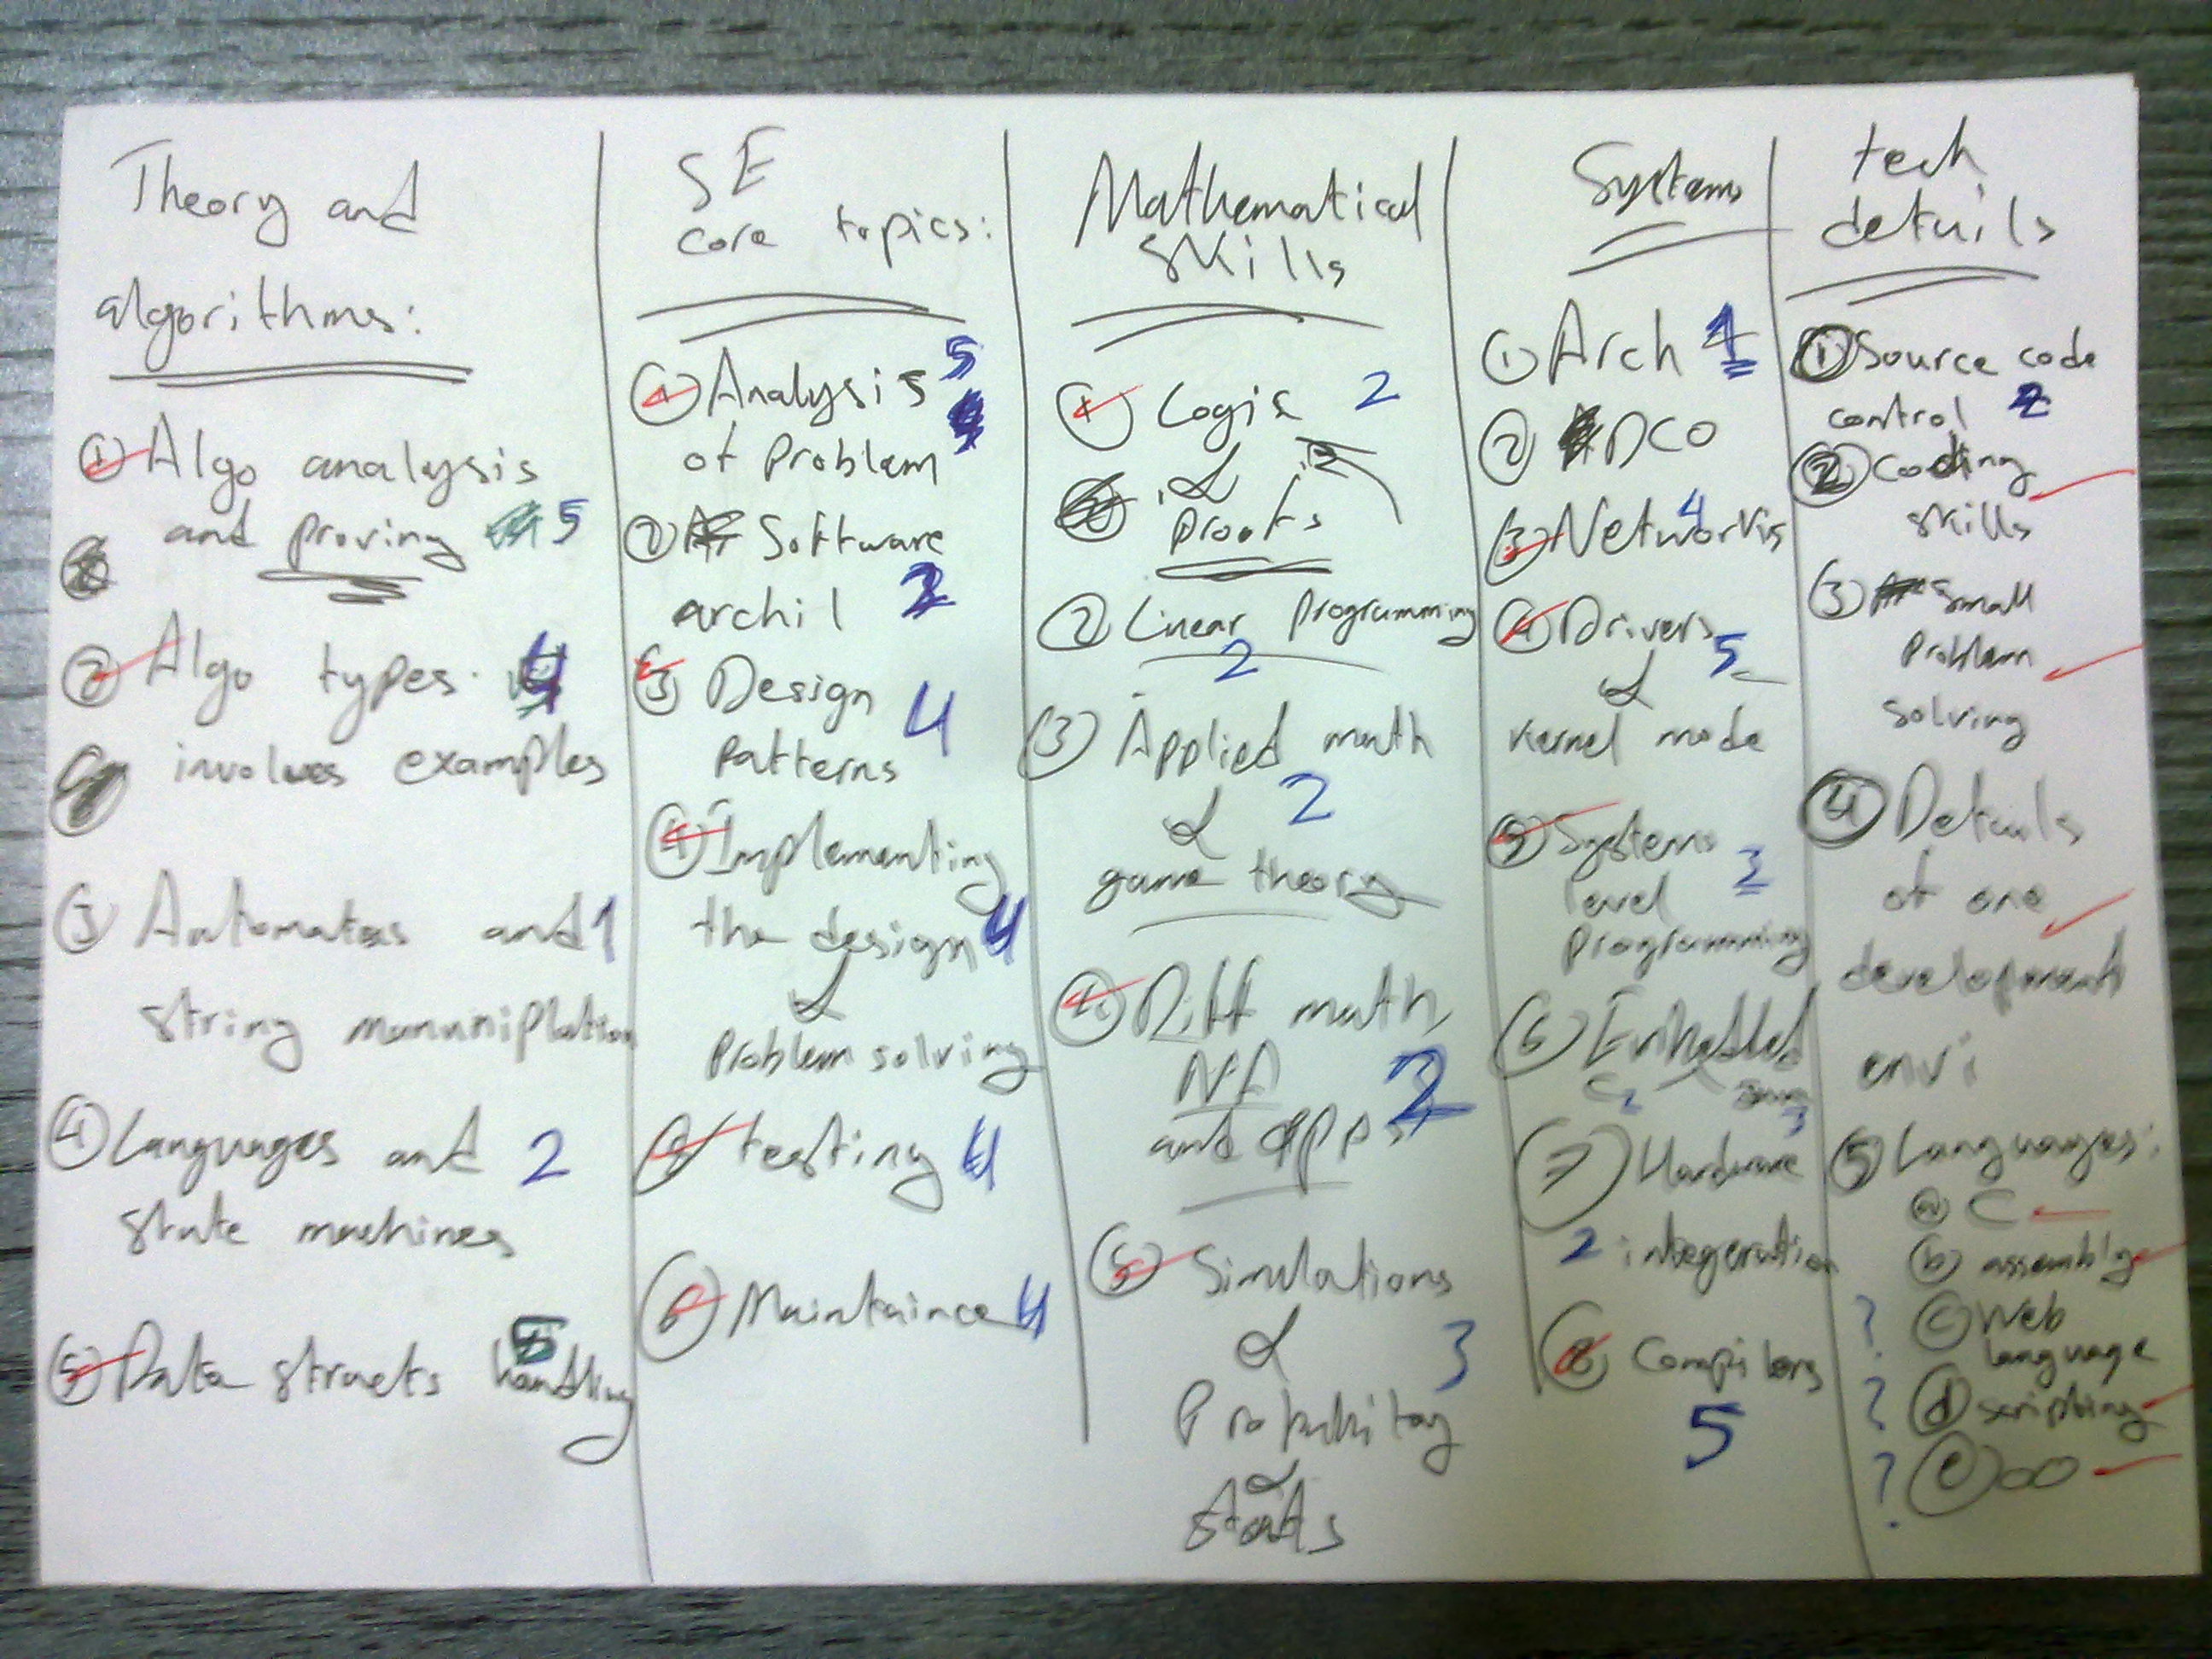 Theory and
algorithms:
① Algo analysis
and proving 5
② Algo types 4
involves examples
③ Automatas and 1
string manuniplation
④ Languages and 2
state machines
⑤ Data structs handling 5
SE
core topics:
① Analysis 5
of problem
② Software
archil
③ Design
patterns 4
④ Implementing
the design 4
&
problem solving
⑤ testing 4
⑥ Maintaince 4
Mathematical
skills
① Logic 2
&
proofs
② Linear programming
2
③ Applied math
& 2
game theory
④ Diff math,
2
and apps
⑤ Simulations
& 3
Probability
&
stats
Systems
① Arch 1
② DCO
③ Networks 4
④ Drivers 5
&
kernel mode
⑤ Systems
level 3
programming
⑥ Embedded
⑦ Hardware
2 integeration
⑧ Compilers
5
tech
details
① Source code
control 2
② Coding
skills
③ small
problem
solving
④ Details
of one
development
envi
⑤ Languages:
ⓐ C
ⓑ assembly
? ⓒ Web
language
? ⓓ scripting
? ⓔ OO